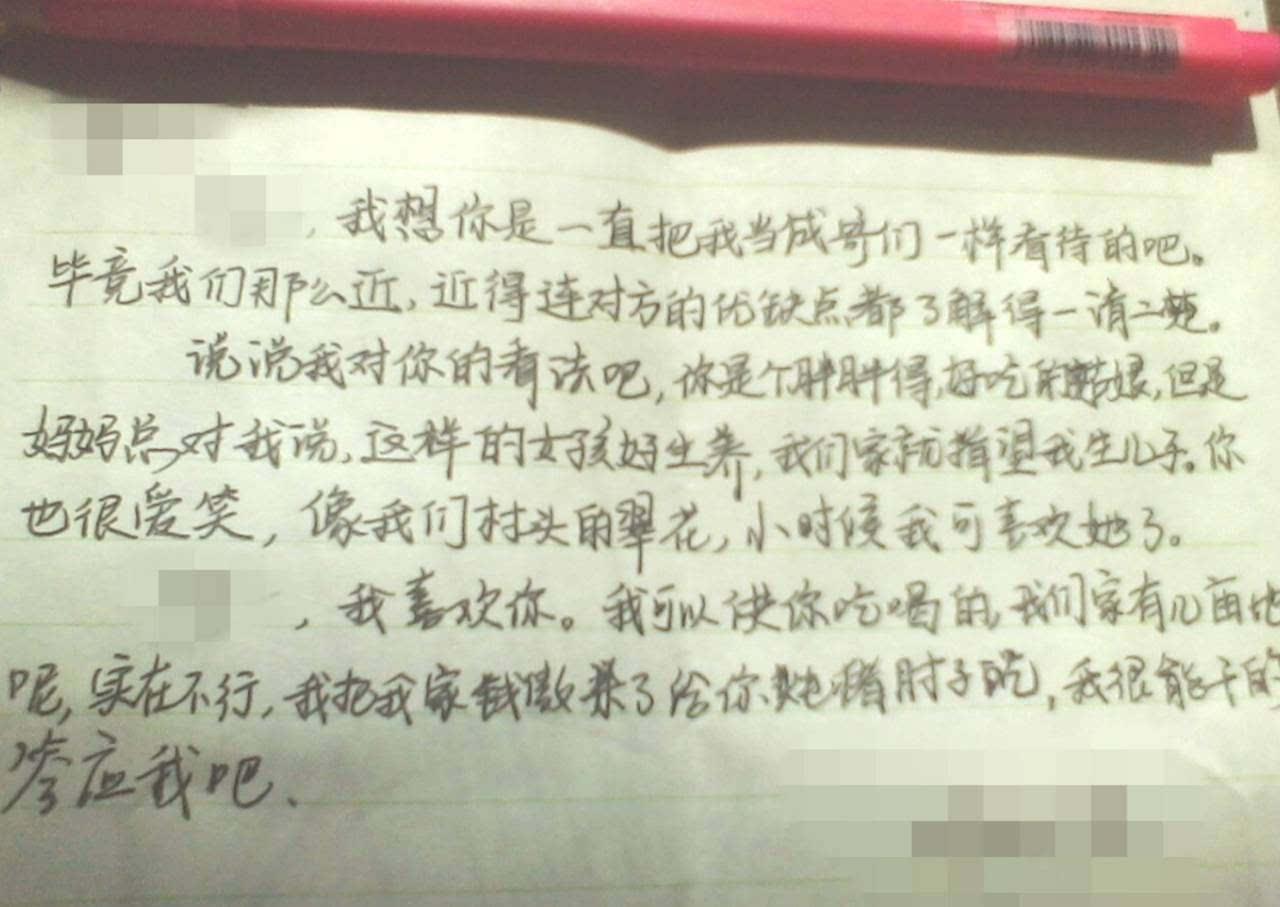 ,我想你是一直把我当成哥们一样看待的吧。
毕竟我们那么近,近得连对方的优缺点都了解得一清二楚。
说说我对你的看法吧,你是个胖胖得,好吃的姑娘,但是
妈妈总对我说,这样的女孩好生养,我们家就指望我生儿子。你
也很爱笑,像我们村头的翠花,小时候我可喜欢她了。
,我喜欢你。我可以供你吃喝的,我们家有几亩地
呢,实在不行,我把我家杀了给你炖猪肘子吃,我很能干的
答应我吧、